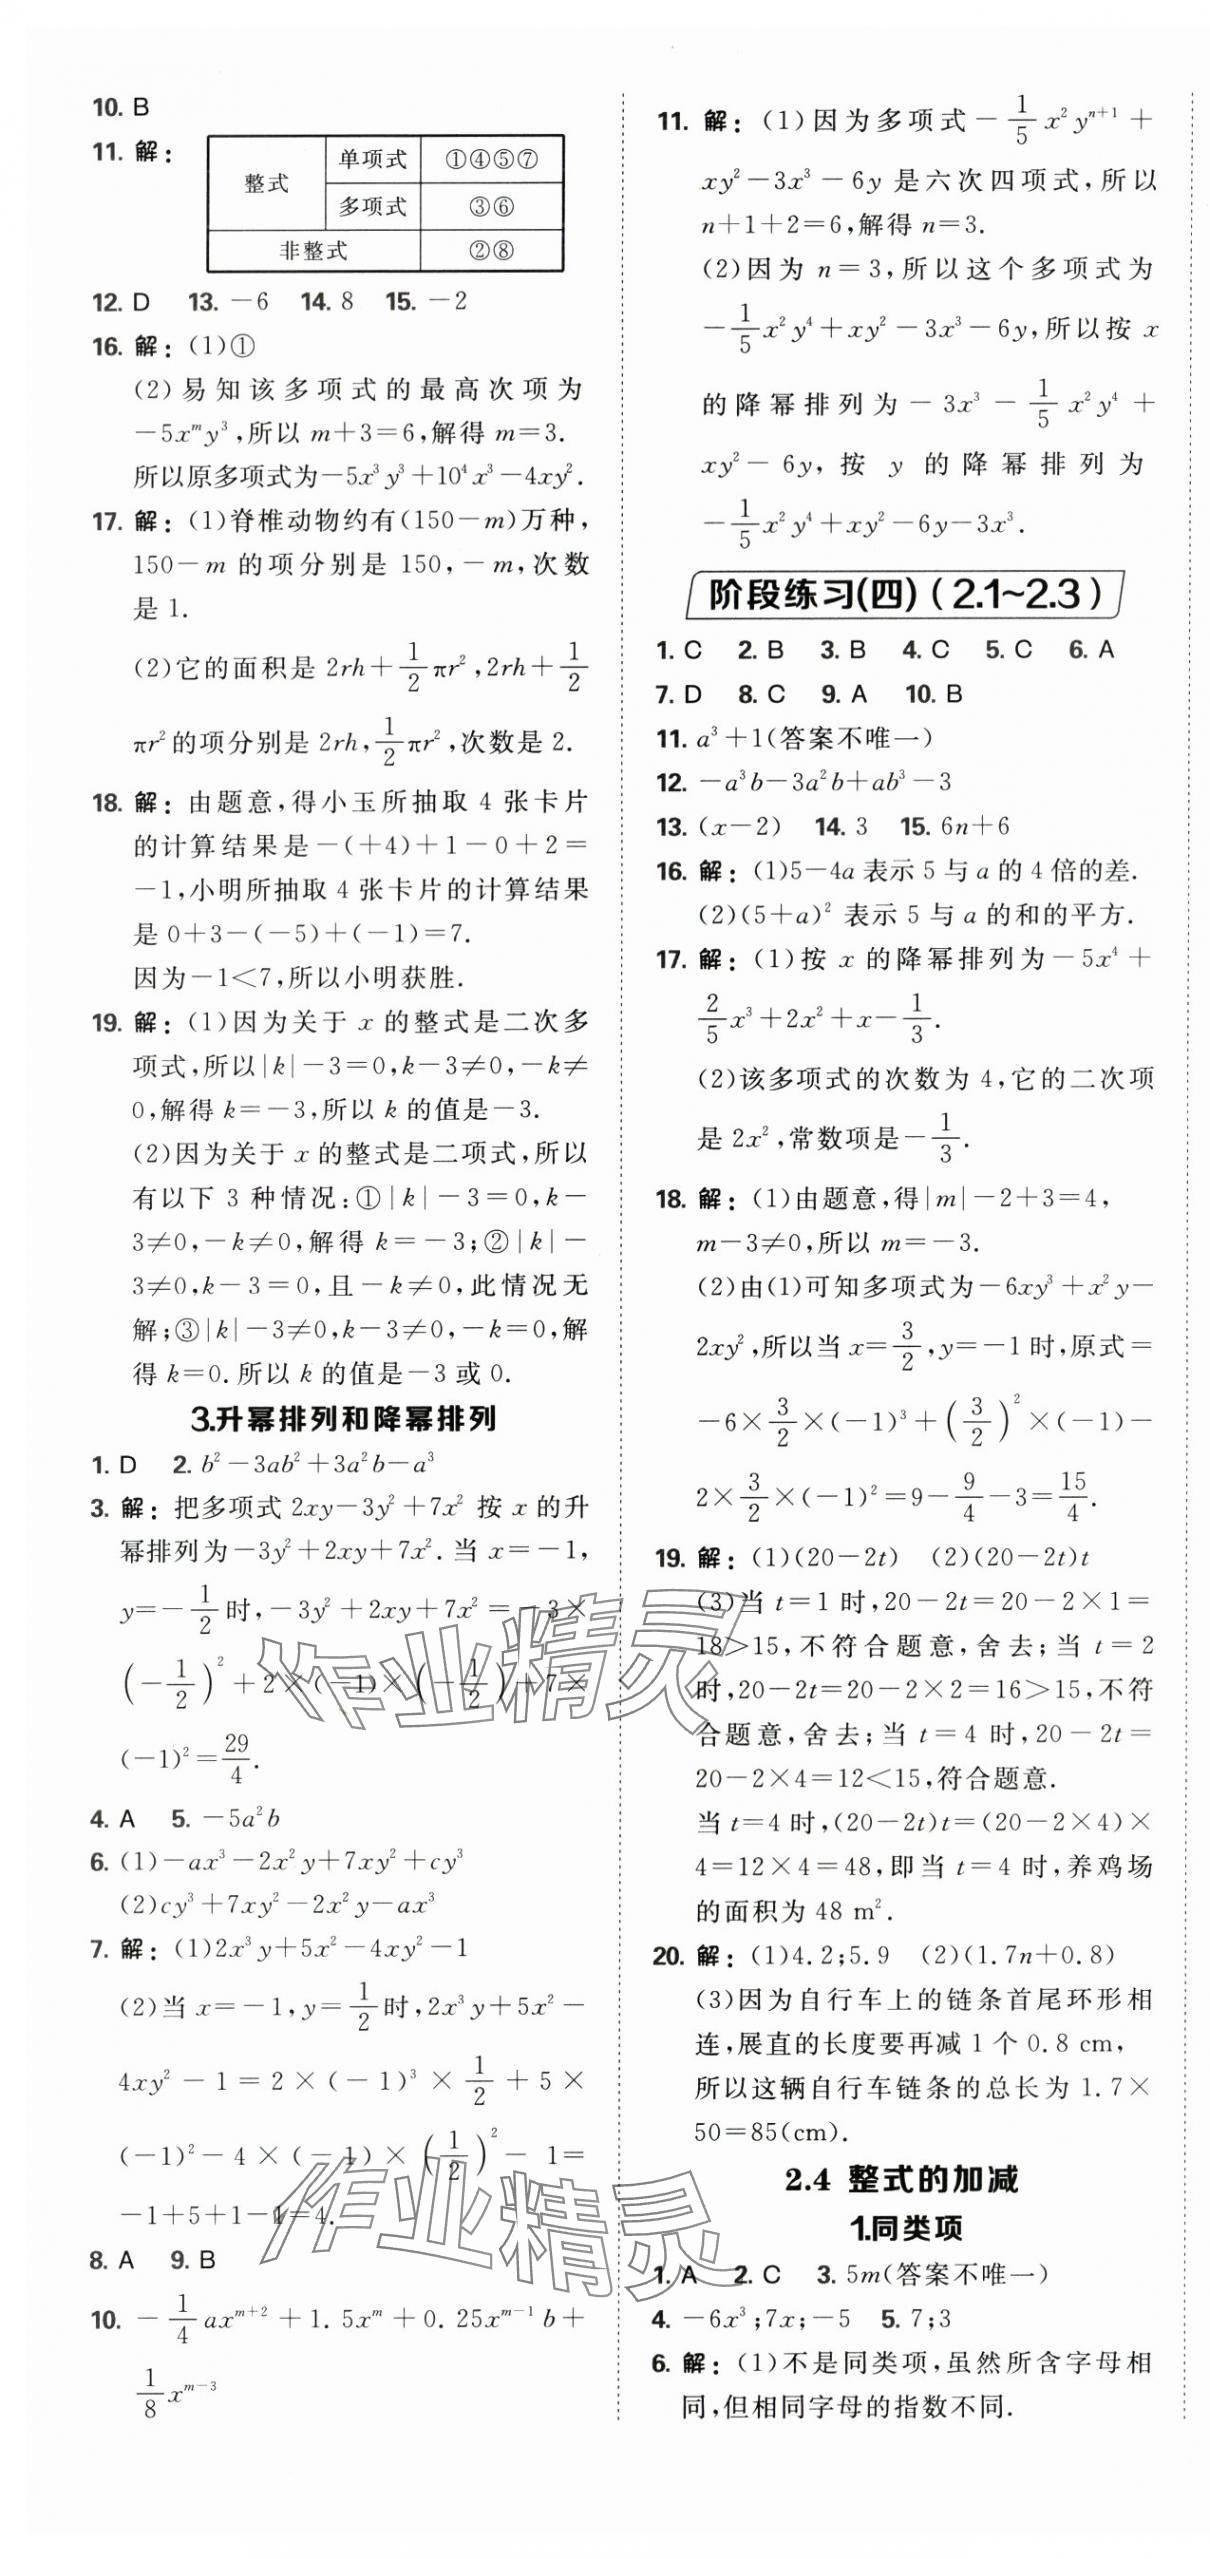 10. B
11. 解：
整式 单项式 ①④⑤⑦
多项式 ③⑥
非整式 ②⑧
12. D 13. －6 14. 8 15. －2
16. 解：(1)①
(2)易知该多项式的最高次项为
－5xᵐy³,所以 m＋3＝6,解得 m＝3.
所以原多项式为－5x³y³＋10⁴x³－4xy².
17. 解：(1)脊椎动物约有(150－m)万种,
150－m 的项分别是 150,－m,次数
是 1.
(2)它的面积是 2rh＋1/2πr²,2rh＋1/2
πr²的项分别是 2rh,1/2πr²,次数是 2.
18. 解：由题意,得小玉所抽取 4 张卡片
的计算结果是－(＋4)＋1－0＋2＝
－1,小明所抽取 4 张卡片的计算结果
是 0＋3－(－5)＋(－1)＝7.
因为－1＜7,所以小明获胜.
19. 解：(1)因为关于 x 的整式是二次多
项式,所以|k|－3＝0,k－3≠0,－k≠
0,解得 k＝－3,所以 k 的值是－3.
(2)因为关于 x 的整式是二项式,所以
有以下 3 种情况：①|k|－3＝0,k－
3≠0,－k≠0,解得 k＝－3;②|k|－
3≠0,k－3＝0,且－k≠0,此情况无
解;③|k|－3≠0,k－3≠0,－k＝0,解
得 k＝0.所以 k 的值是－3 或 0.
3.升幂排列和降幂排列
1. D 2. b²－3ab²＋3a²b－a³
3. 解：把多项式 2xy－3y²＋7x² 按 x 的升
幂排列为－3y²＋2xy＋7x².当 x＝－1,
y＝－1/2时,－3y²＋2xy＋7x²＝－3×
(－1/2)²＋2×(－1)×(－1/2)＋7×
(－1)²＝29/4.
4. A 5. －5a²b
6. (1)－ax³－2x²y＋7xy²＋cy³
(2)cy³＋7xy²－2x²y－ax³
7. 解：(1)2x³y＋5x²－4xy²－1
(2)当 x＝－1,y＝1/2时,2x³y＋5x²－
4xy²－1＝2×(－1)³×1/2＋5×
(－1)²－4×(－1)×(1/2)²－1＝
－1＋5＋1－1＝4.
8. A 9. B
10. －1/4axᵐ⁺²＋1.5xᵐ＋0.25xᵐ⁻¹b＋
1/8xᵐ⁻³
11. 解：(1)因为多项式－1/5x²yⁿ⁺¹＋
xy²－3x³－6y 是六次四项式,所以
n＋1＋2＝6,解得 n＝3.
(2)因为 n＝3,所以这个多项式为
－1/5x²y⁴＋xy²－3x³－6y,所以按 x
的降幂排列为－3x³－1/5x²y⁴＋
xy²－6y,按 y 的降幂排列为
－1/5x²y⁴＋xy²－6y－3x³.
阶段练习(四)(2.1~2.3)
1. C 2. B 3. B 4. C 5. C 6. A
7. D 8. C 9. A 10. B
11. a³＋1(答案不唯一)
12. －a³b－3a²b＋ab³－3
13. (x－2) 14. 3 15. 6n＋6
16. 解：(1)5－4a 表示 5 与 a 的 4 倍的差.
(2)(5＋a)² 表示 5 与 a 的和的平方.
17. 解：(1)按 x 的降幂排列为－5x⁴＋
2/5x³＋2x²＋x－1/3.
(2)该多项式的次数为 4,它的二次项
是 2x²,常数项是－1/3.
18. 解：(1)由题意,得|m|－2＋3＝4,
m－3≠0,所以 m＝－3.
(2)由(1)可知多项式为－6xy³＋x²y－
2xy²,所以当 x＝3/2,y＝－1 时,原式＝
－6×3/2×(－1)³＋(3/2)²×(－1)－
2×3/2×(－1)²＝9－9/4－3＝15/4.
19. 解：(1)(20－2t) (2)(20－2t)t
(3)当 t＝1 时,20－2t＝20－2×1＝
18＞15,不符合题意,舍去;当 t＝2
时,20－2t＝20－2×2＝16＞15,不符
合题意,舍去;当 t＝4 时,20－2t＝
20－2×4＝12＜15,符合题意.
当 t＝4 时,(20－2t)t＝(20－2×4)×
4＝12×4＝48,即当 t＝4 时,养鸡场
的面积为 48 m².
20. 解：(1)4.2;5.9 (2)(1.7n＋0.8)
(3)因为自行车上的链条首尾环形相
连,展直的长度要再减 1 个 0.8 cm,
所以这辆自行车链条的总长为 1.7×
50＝85(cm).
2.4 整式的加减
1.同类项
1. A 2. C 3. 5m(答案不唯一)
4. －6x³;7x;－5 5. 7;3
6. 解：(1)不是同类项,虽然所含字母相
同,但相同字母的指数不同.
作业精灵
作业精灵